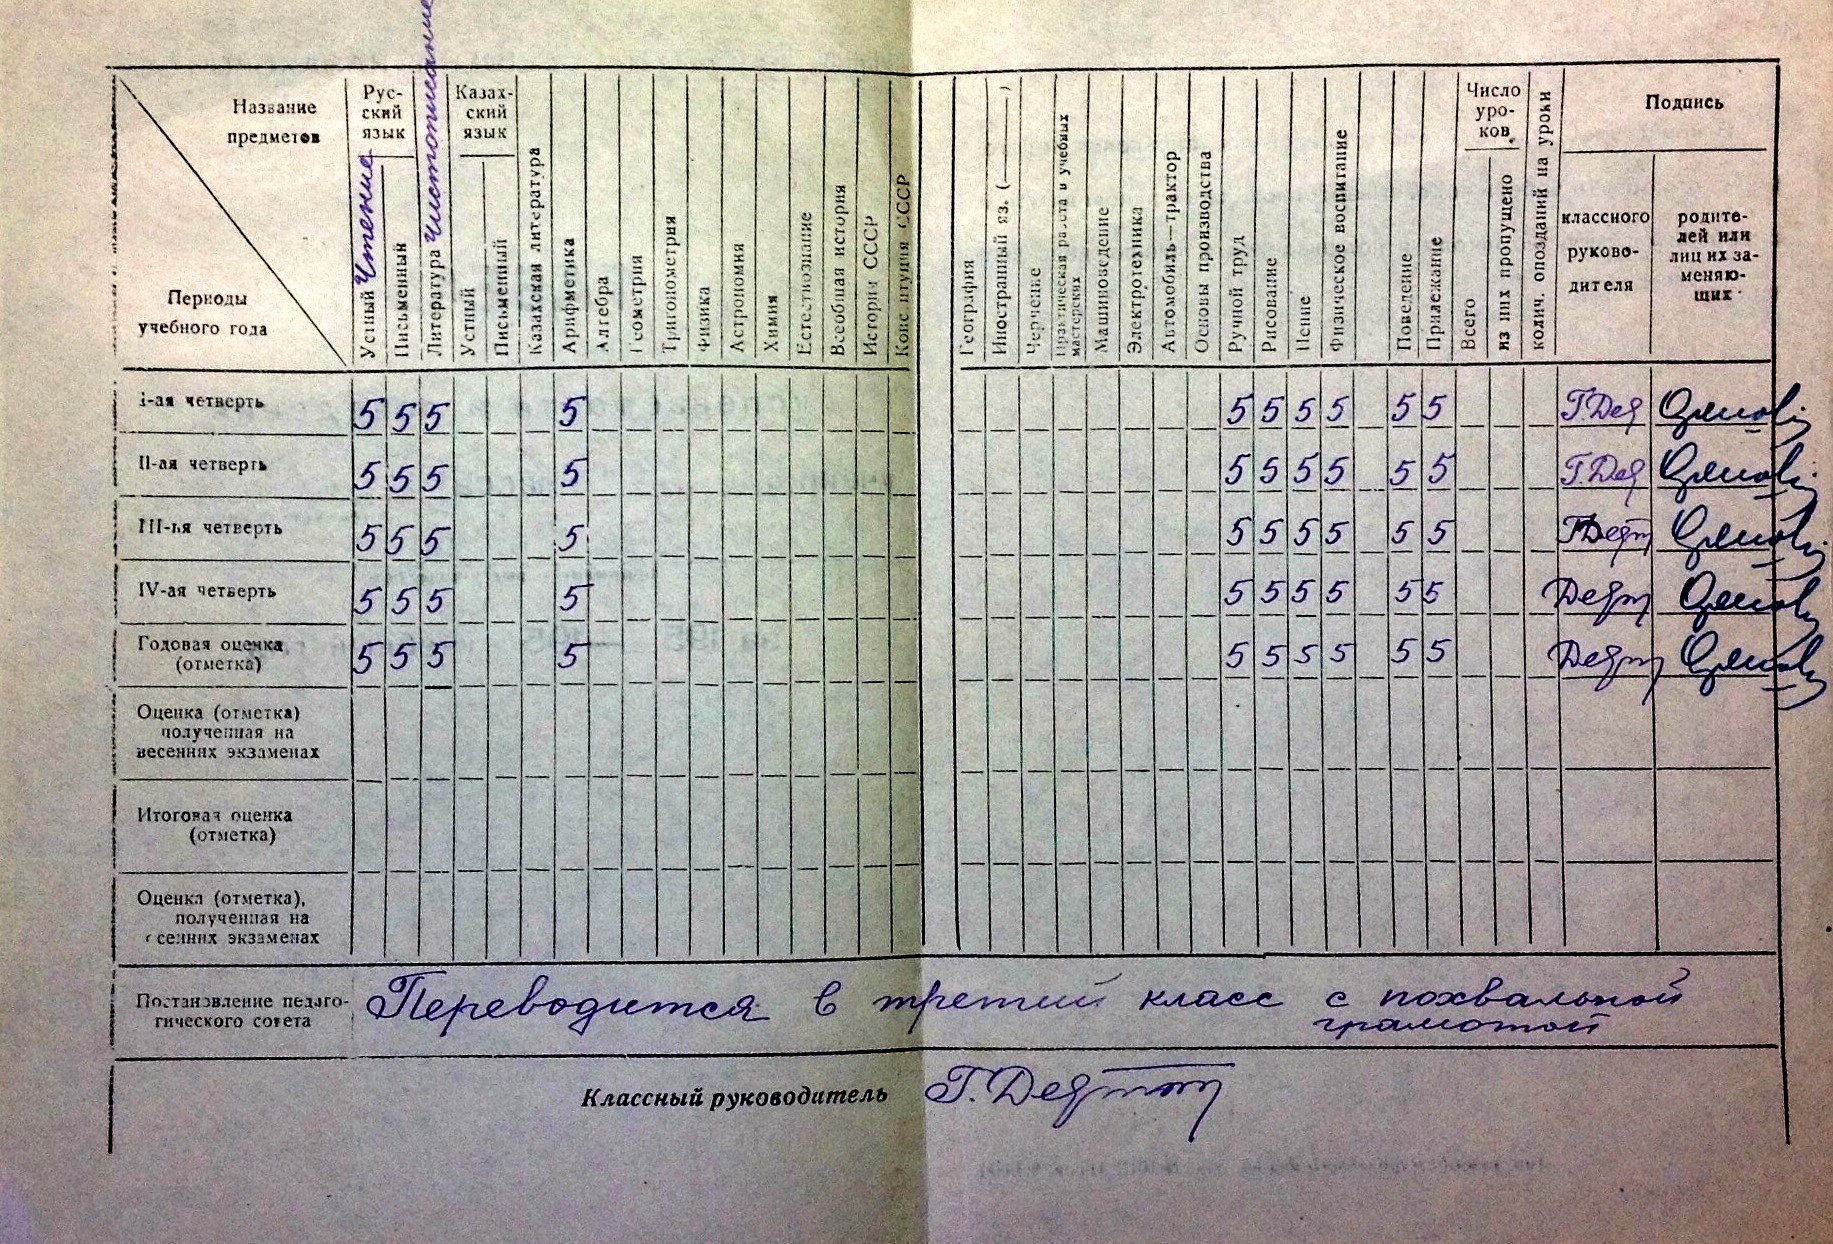 Название
предметов
Периоды
учебного года
Рус-
ский
язык
Устный Чтение
Письменный
Литература Чистописание
Казах-
ский
язык
Устный
Письменный
Казахская литература
Арифметика
Алгебра
Геометрия
Тригонометрия
Физика
Астрономия
Химия
Естествознание
Всеобщая история
История СССР
Конституция СССР
География
Иностранный яз. (
)
Черчение
Практическая работа в учебных
мастерских
Машиноведение
Электротехника
Автомобиль—трактор
Основы производства
Ручной труд
Рисование
Пение
Физическое воспитание
Поведение
Прилежание
Число
уро-
ков
Всего
из них пропущено
колич. опозданий на уроки
Подпись
классного
руково-
дителя
родите-
лей или
лиц их за-
меняю-
щих
I-ая четверть 5 5 5 5 5 5 5 5 5 5
II-ая четверть 5 5 5 5 5 5 5 5 5 5
III-ья четверть 5 5 5 5 5 5 5 5 5 5
IV-ая четверть 5 5 5 5 5 5 5 5 5 5
Годовая оценка
(отметка) 5 5 5 5 5 5 5 5 5 5
Оценка (отметка)
полученная на
весенних экзаменах
Итоговая оценка
(отметка)
Оценка (отметка),
полученная на
осенних экзаменах
Постановление педаго-
гического совета
Переводится в третий класс с похвальной
грамотой
Классный руководитель